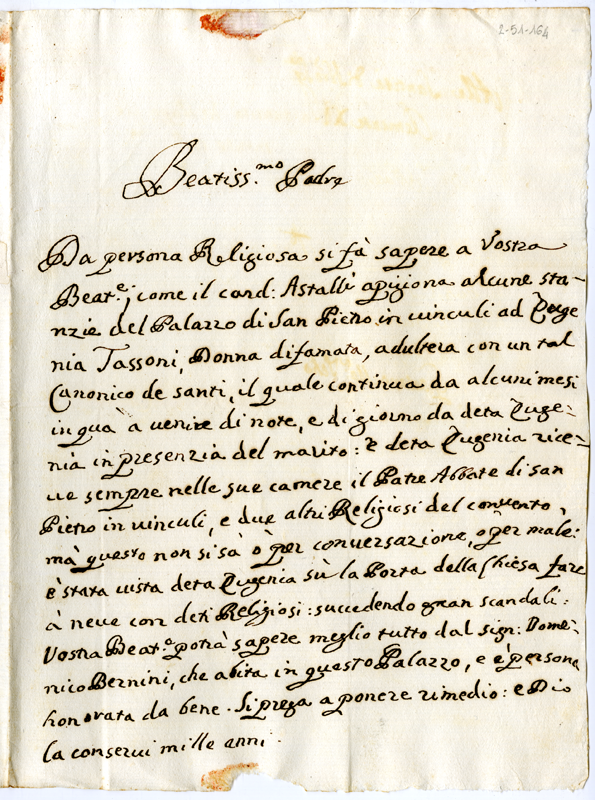 2-51-164
Beatiss.mo Padre
Da persona Religiosa si fà sapere a Vostra
Beat.e; come il card: Astalli apigiona alcune sta-
nzie del Palazzo di San Pietro in vinculi ad Euge
nia Tassoni, Donna difamata, adultera con un tal
Canonico de santi, il quale continua da alcuni mesi
in quà a venire di note, e di giorno da deta Euge-
nia in presenzia del marito: e deta Eugenia rice-
ve sempre nelle sue camere il Patre Abbate di san
Pietro in vinculi, e due altri Religiosi del convento,
mà questo non si sà ò per conversazione, o per male:
è stata vista deta Eugenia sù la Porta della Chiesa fare
à neve con deti Religiosi: succedendo gran scandali:
Vostra Beat.e potrà sapere meglio tutto dal sign: Dome-
nico Bernini, che abita in questo Palazzo, e è persona
honorata da bene. Si prega a ponere rimedio: e Dio
la conservi mille anni.